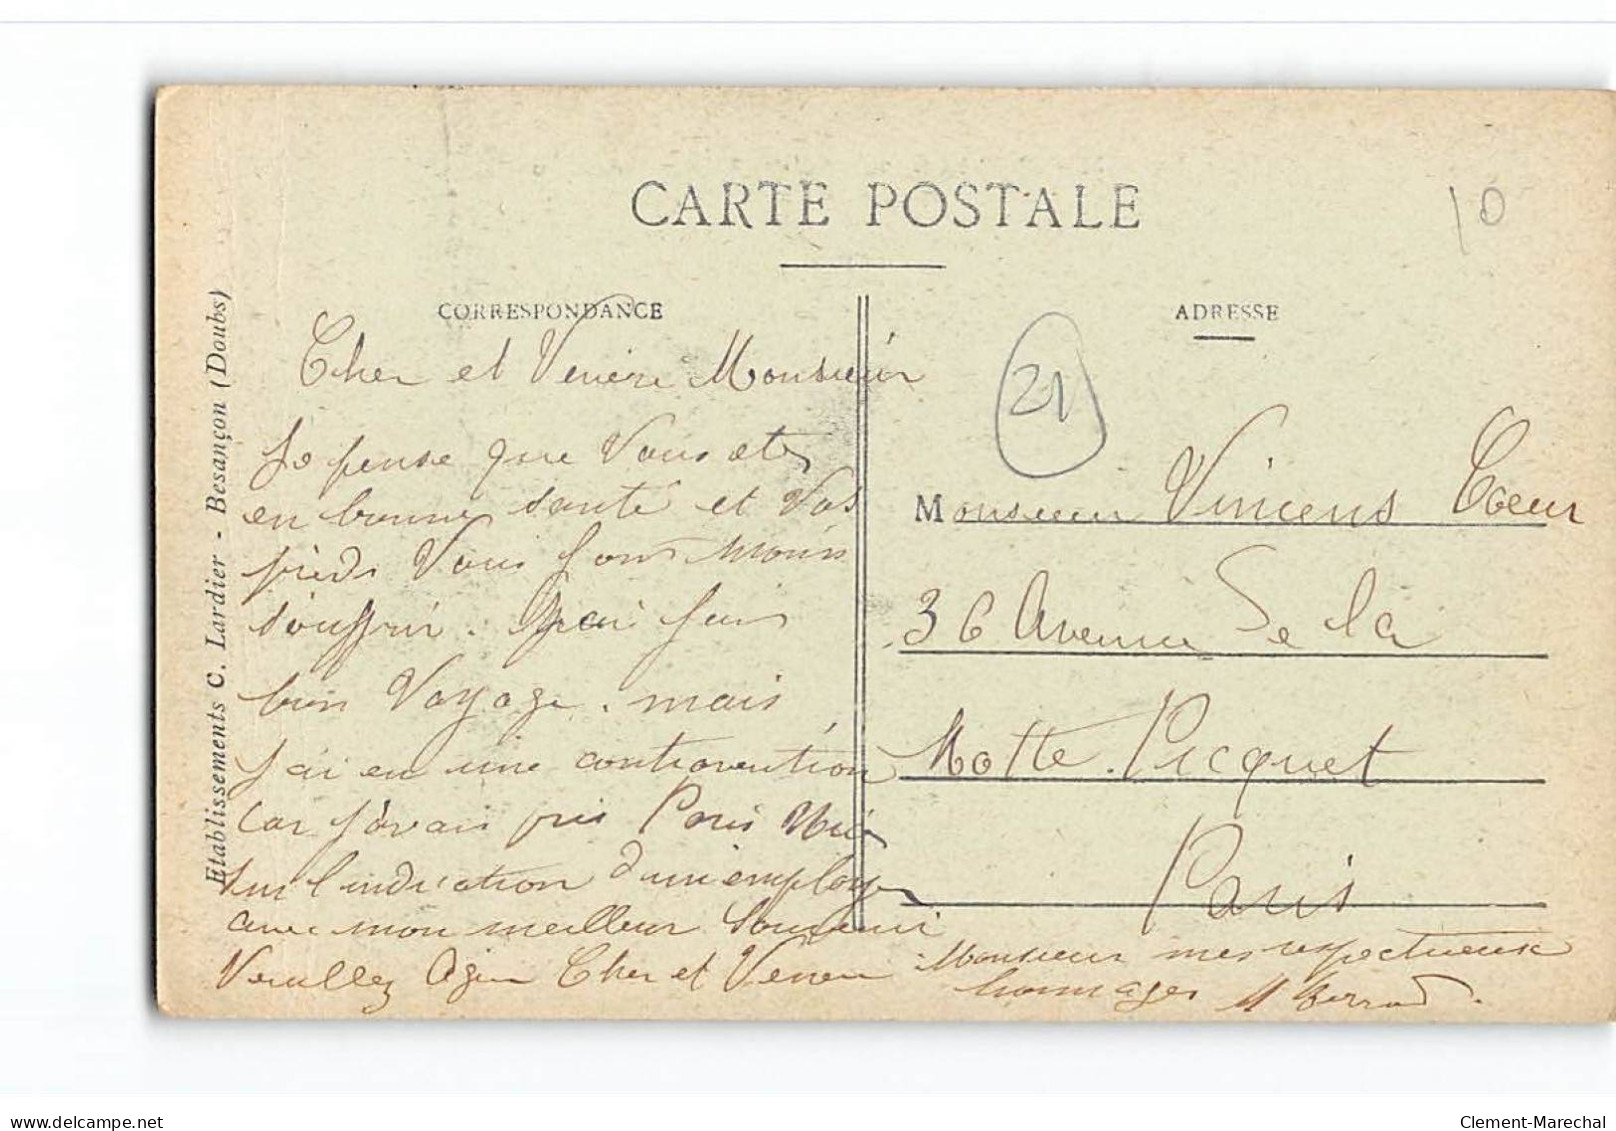 CARTE POSTALE
10
CORRESPONDANCE
ADRESSE
Etablissements C. Lardier - Besançon (Doubs)
21
Cher et Vénéré Monsieur
Je pense que Vous etes
en bonne santé et Vos
pieds Vous font moins
souffrir. J'ai fais
bon Voyage. mais
j'ai eu une contravention
car j'avais pris Paris
sur l'indication d'un employe
avec mon meilleur Souvenir
Veuillez Cher et Vénéré
Monsieur mes respectueux
hommages
Monsieur Vincens Coeur
36 Avenue de la
Motte. Picquet
Paris
delcampe.net
Clement-Marechal